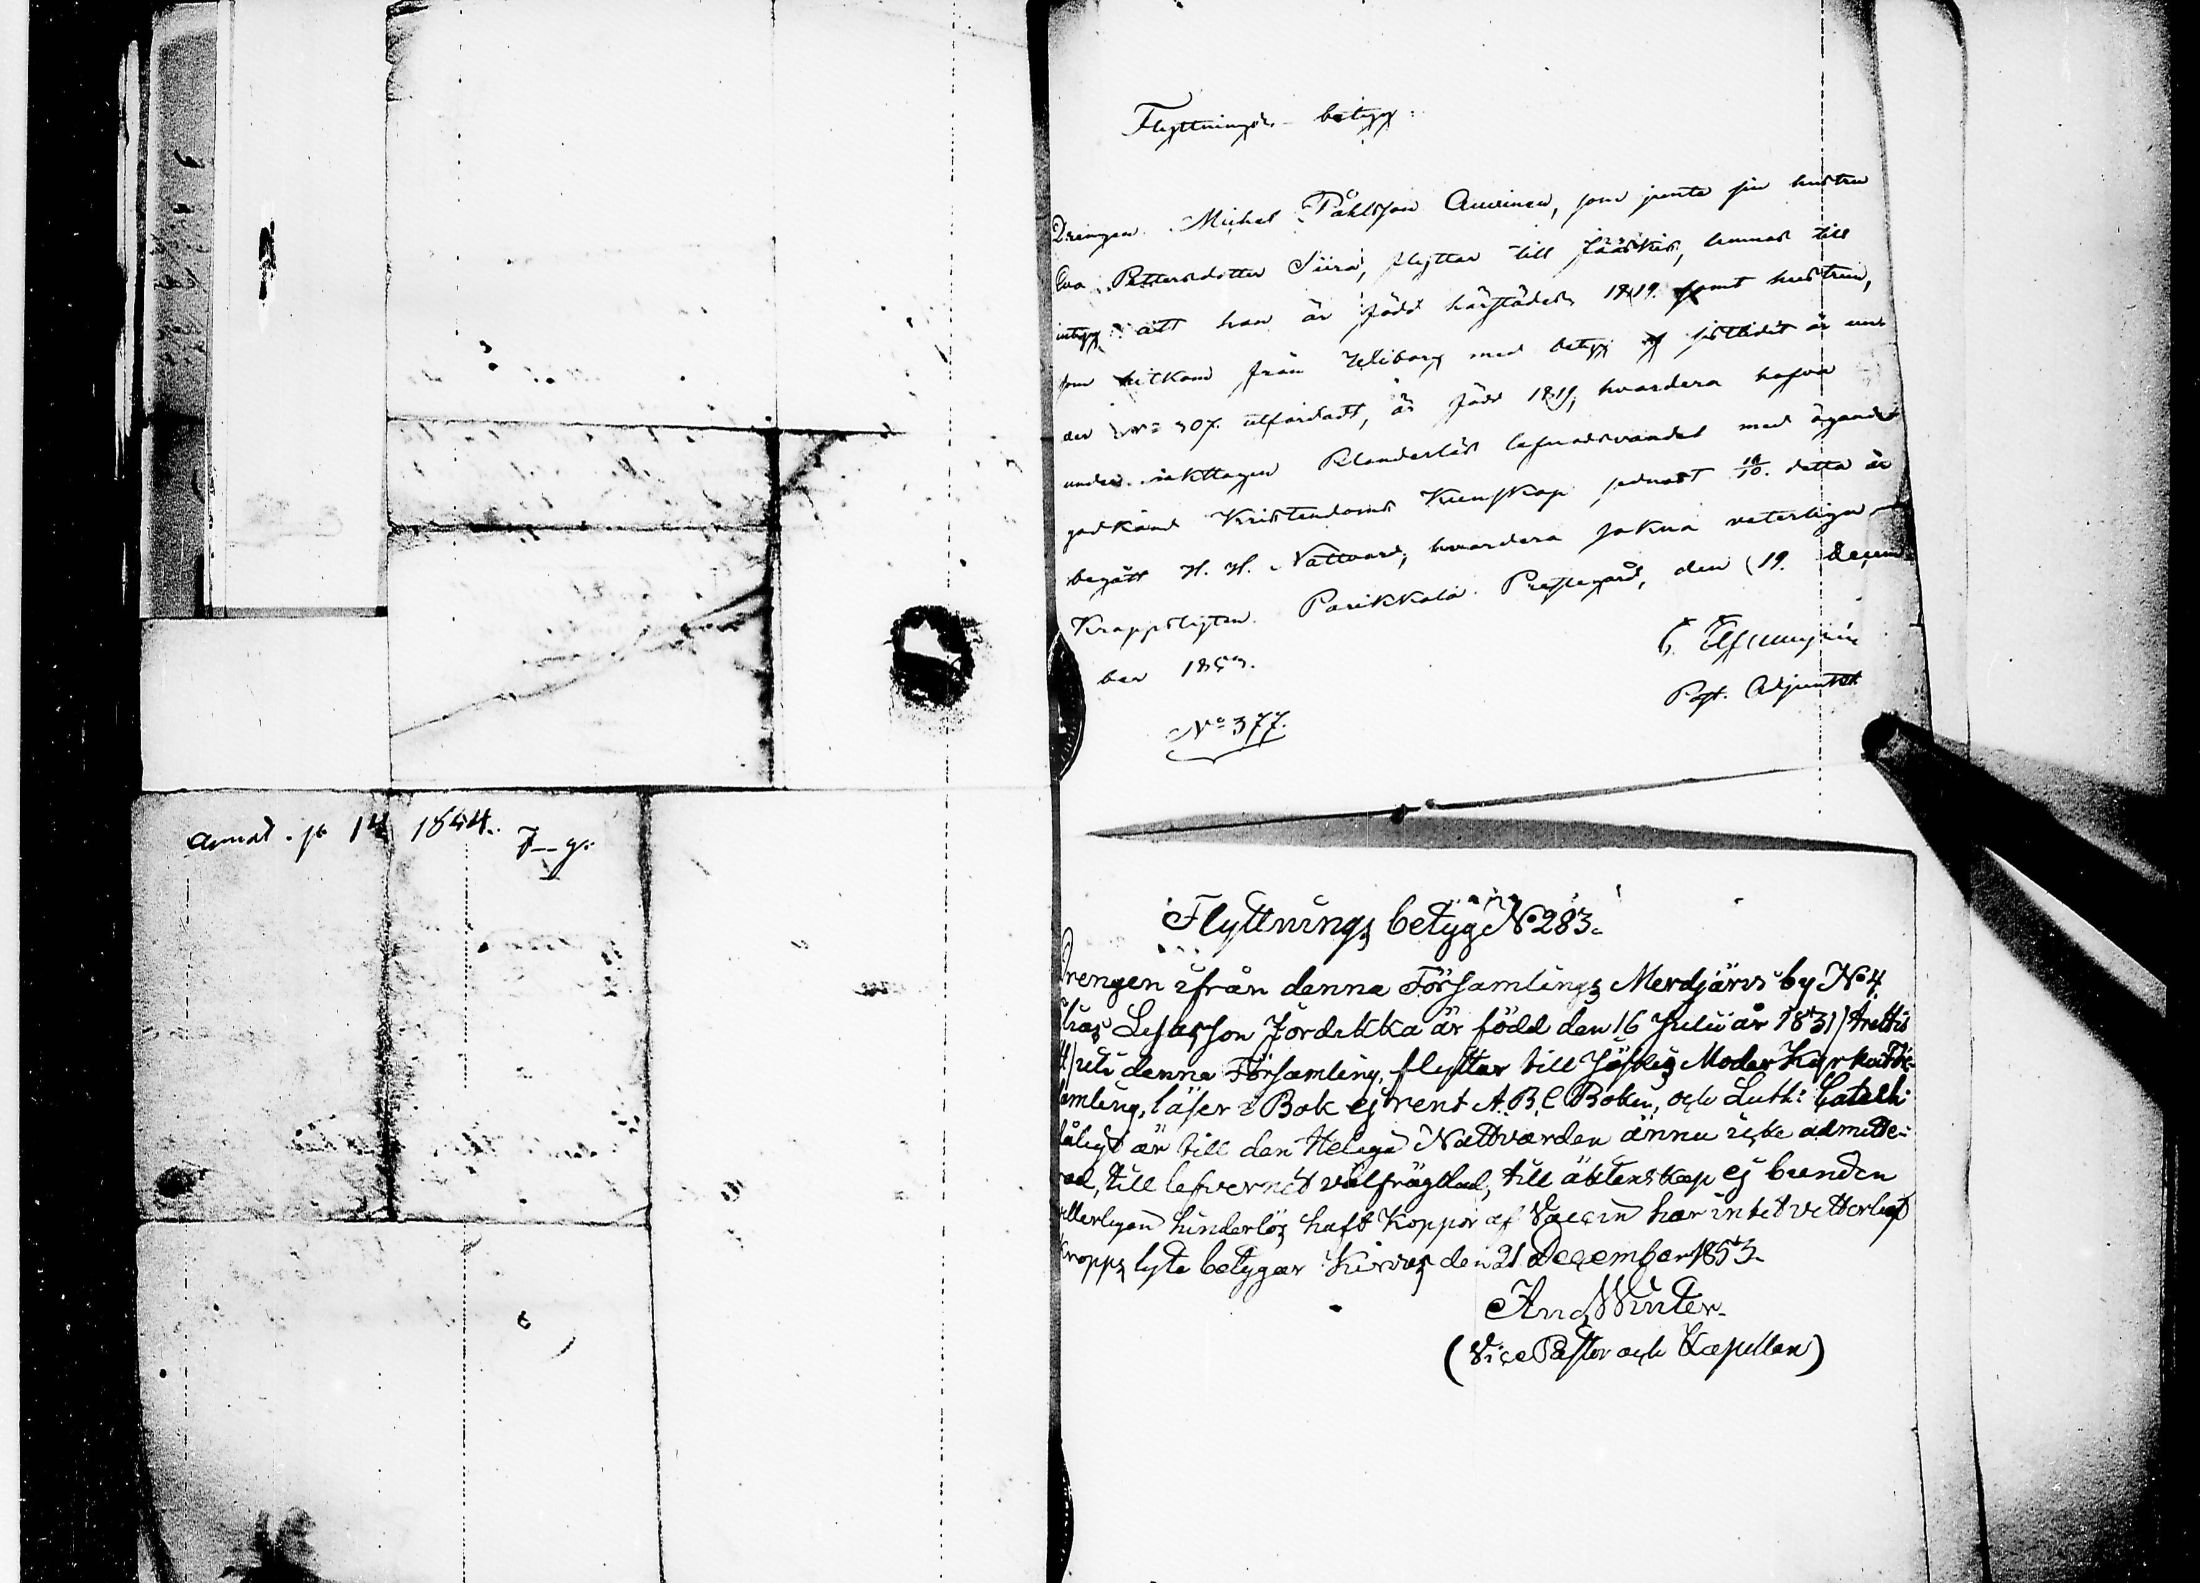 anmäl. p 14 1854.
Flyttnings- betyg:
Drengen Michel Påhlsson Auvinen, som jemte sin hustru
Eva Pettersdotter Siira, flyttar till Jääskis, lemnas till
intyg att han är född härstädes 1819. samt hustrun,
som hitkom från Wiborg med betyg af sistledit år un-
der No 307. utfärdadt, är född 1819, hvardera hafva
under iakttagen klanderlös lefnadsvandel med ägande
godkänd Kristendoms Kunskap sednast detta år
begått H. H. Nattvard; hvardera sakna veterliga
Kroppslyten. Parikkala Prestegård, den 19. Decem-
ber 1853.
Past. Adjunkt
No 377.
Flyttnings betyg No 283.
Drengen ifrån denna Församlings Merdjärvi by No 4
Elias Jordikka är född den 16 Julii år 1831/ trettio
uti denna Församling, flyttar till Moder Kyrko För-
samling, läser i Bok ej rent A.B.C Boken, och Luth: Catech:
är till den Heliga Nattvarden ännu icke admitte-
rad, till lefvernet välfrägdad, till äktenskap ej bunden
hinderlös haft Koppor af Vaccin har intet vetterligt
Kropps lyte betygar Kirvus den 21 December 1853.
And. Winter.
(Vice Pastor och Kapellan)